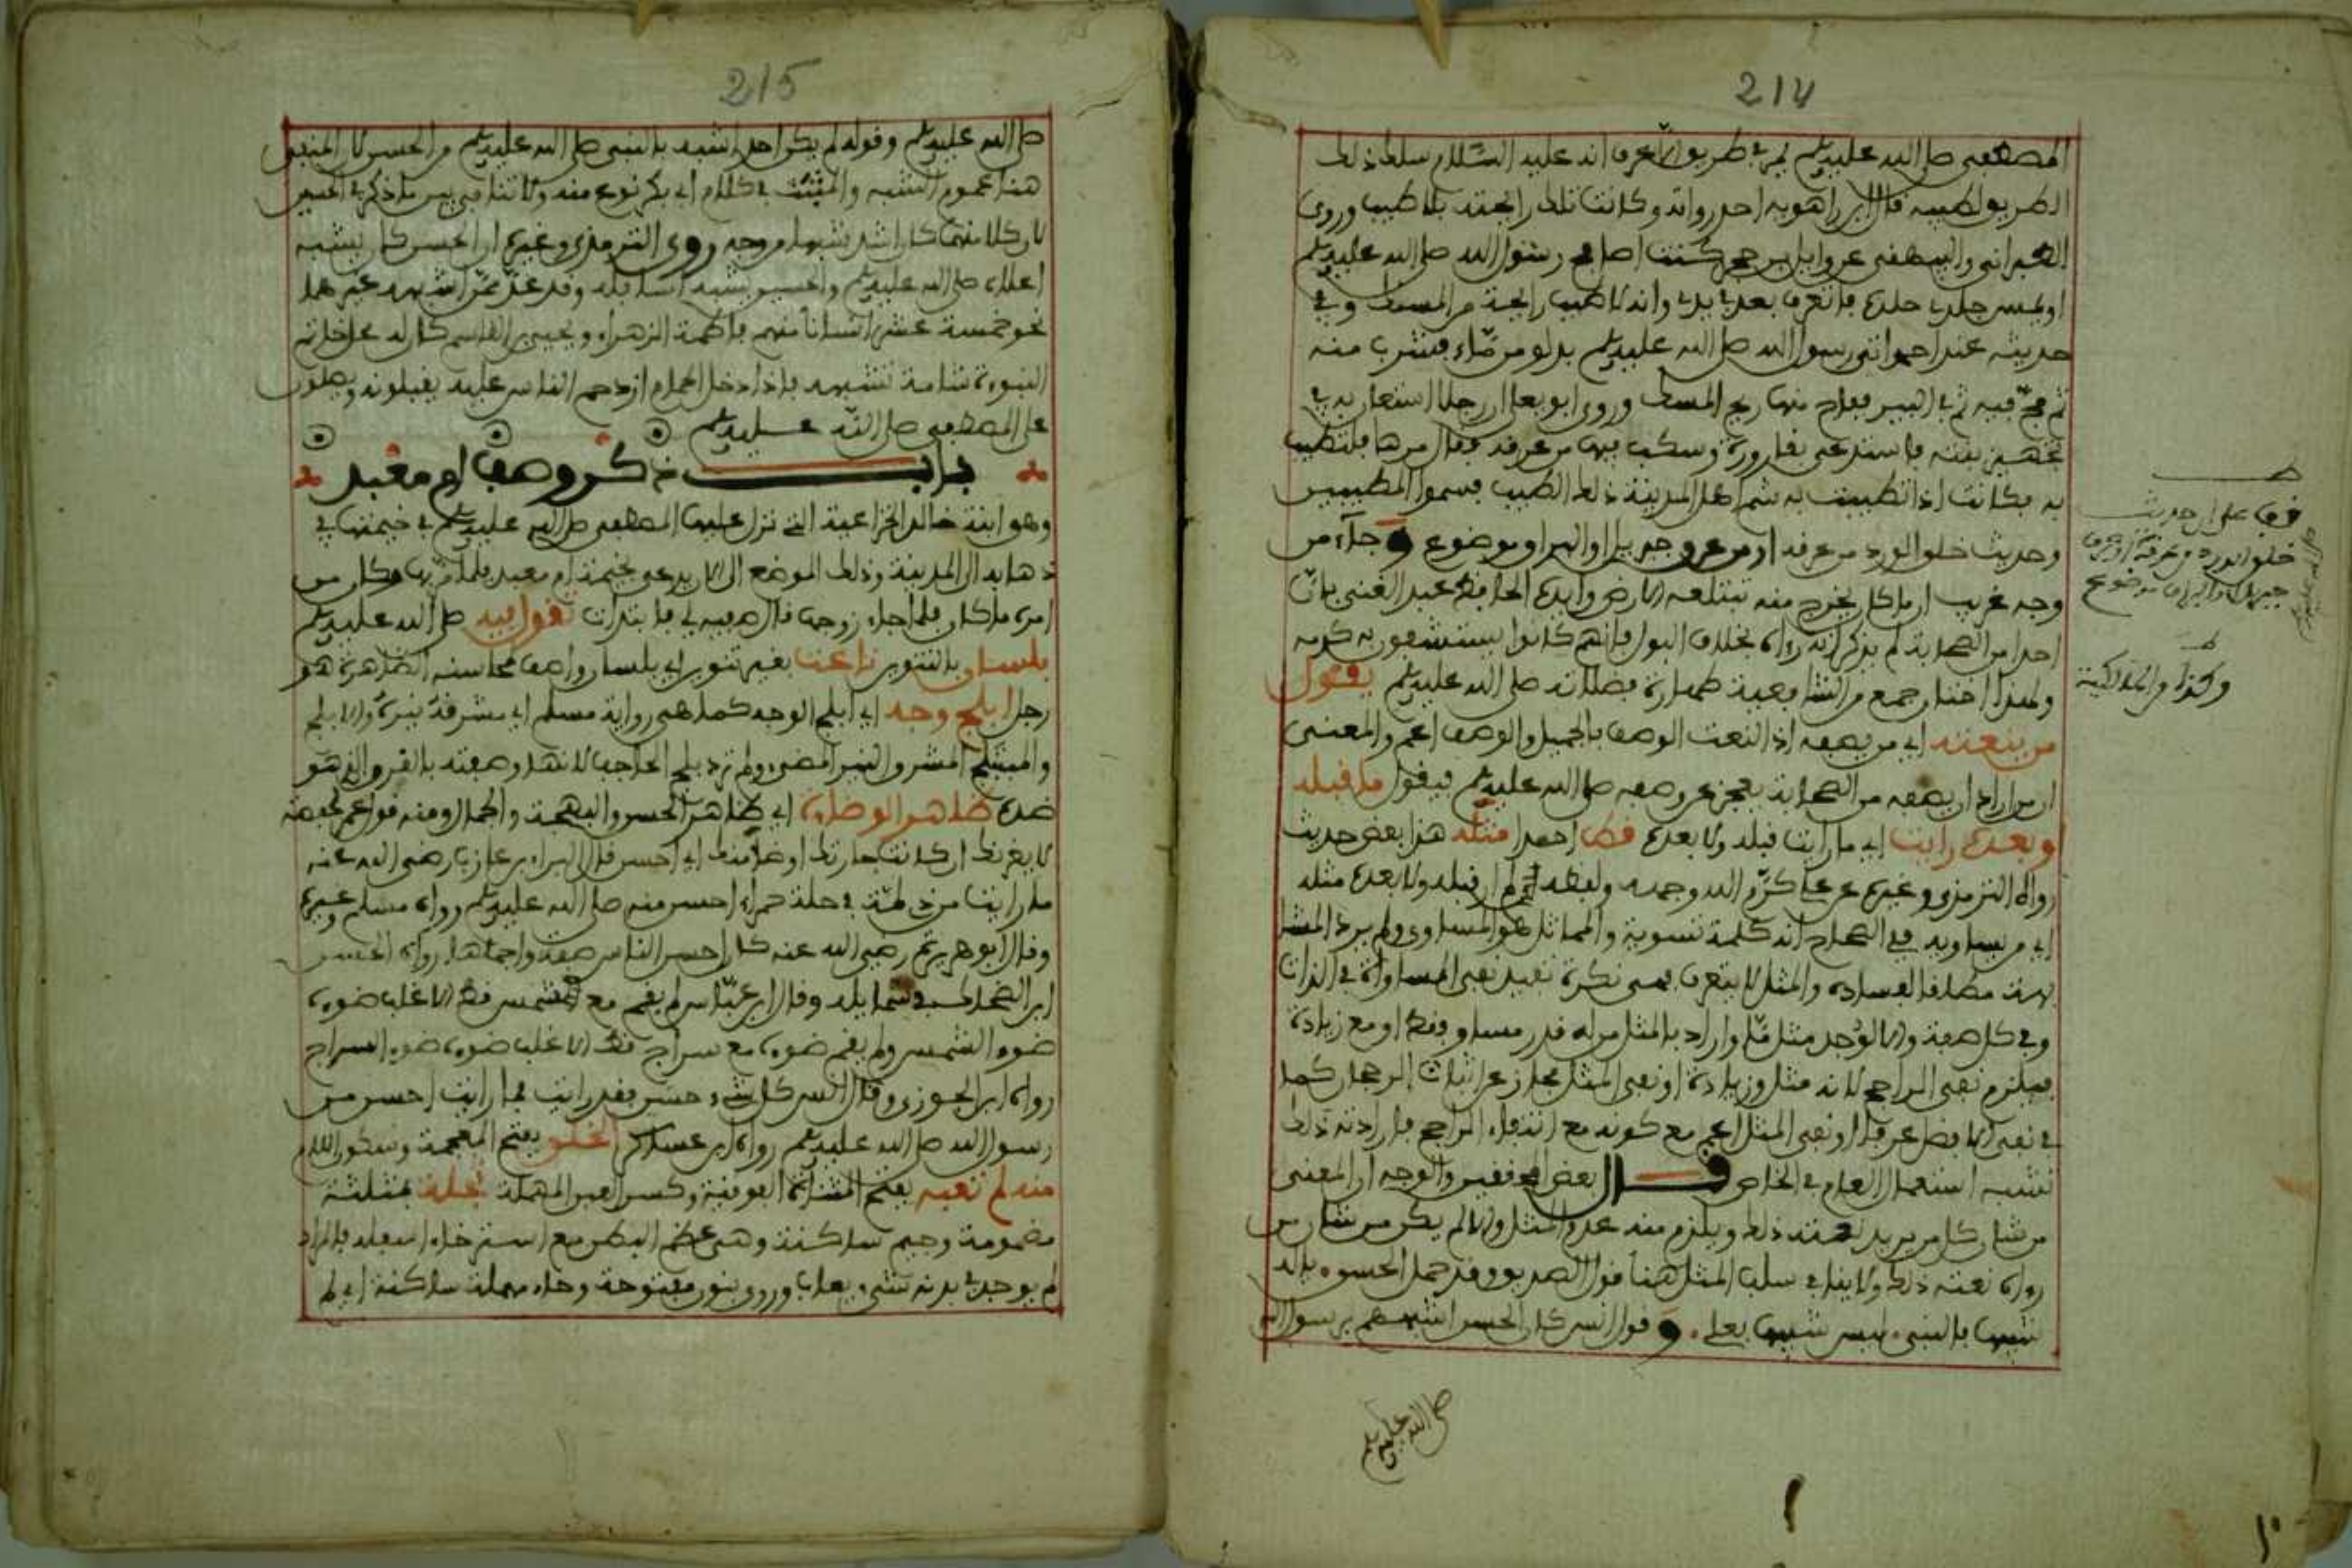 214
المصطفى صلى الله عليه وسلم لم يمر في طريق إلا عرف انه عليه السلام سلك ذلك
الطريق لطيبه قال ابن راهويه احد رواته وكانت تلك رايحته بلا طيب وروى
الطبراني والبيهقي عن وايل بن حجر كنت اصافح رسول الله صلى الله عليه وسلم
او يمس جلدي جلده فاتعرفه بعد في يدي وانه لاطيب رايحة من المسك وفي
حديثه عند احمد اتي رسول الله صلى الله عليه وسلم بدلو من ماء فشرب منه
ثم مج فيه ثم في البير ففاح منها ريح المسك وروى ابو يعلى ان رجلا استعان به في
تجهيز بنته فاستدعى بقارورة وسكب فيها من عرقه فقال مرها فلتطيب
به فكانت اذا تطيبت به شم اهل المدينة ذلك الطيب فسموا المطيبين
وحديث خلق الورد من عرقه او من عرق جبريل او البراق موضوع وجاء من
وجه غريب ان ما كان يخرج منه تبتلعه الارض وايده الحافظ عبد الغني بان
احدا من الصحابة لم يذكر انه رءاه بخلاف البول فانهم كانوا يستشفون به كدمه
ولهذا اختار جمع من الشافعية طهارة فضلاته صلى الله عليه وسلم يقول
من ينعته اي من يصفه اذ النعت الوصف بالجميل والوصف اعم والمعنى
ان من اراد ان يصفه من الصحابة يعجز عن وصفه صلى الله عليه وسلم فيقول ما قبله
وبعده رايت اي ما رايت قبله ولا بعده قط احدا مثله هذا بعض حديث
رواه الترمذي وغيره عن علي كرم الله وجهه ولفظه لم ار قبله ولا بعده مثله
اي من يساويه ففي الصحاح انه كلمة تسوية والمماثل هو المساوي ولم يرد المثل
مطلقا لفساده والمثل لا يتعرف فهي نكرة تفيد نفي المساواة في الذات
وفي كل صفة والا لوجد مثل ما واراد بالمثل من له قدر مساو فقط او مع زيادة
فيلزم نفي الراجح لانه مثل وزيادة او نفي المثل مجاز عن اثبات الرجحان كما
في نفي الافضل عرفا او نفي المثل اعم مع كونه مع انتفاء الراجح فارادته ذلك
تشبه استعمال العام في الخاص قال بعض المحققين والوجه ان المعنى
من شان كل من يريد نعته ذلك ويلزم منه عدم المثل والا لم يكن من شان من
رءاه نعته ذلك ولا ينافي سلب المثل هنا قول الصديق وقد حمل الحسن بابي
شبيه بالنبي ليس شبيها بعلي. وقول انس كان الحسن اشبههم برسول الله
صلى الله عليه وسلم
قف على ان حديث
خلق الورد من عرقه او عرق
جبريل او البراق موضوع
وكذا من المالكية
215
صلى الله عليه وسلم وقوله لم يكن احد اشبه بالنبي صلى الله عليه وسلم من الحسن لان المنفي
هنا عموم الشبه والمثبت في كلام ابي بكر نوع منه ولا تنافي بين ما ذكر في الحسين
لان كلا منهما كان اشد شبها من وجه روى الترمذي وغيره ان الحسن كان يشبه
اعلاه صلى الله عليه وسلم والحسين يشبه اسافله وقد عد من اشبهه غيرهما
نحو خمسة عشر انسانا منهم فاطمة الزهراء ويحيى بن القاسم كان له محل خاتم
النبوءة شامة تشبهه فاذا دخل الحمام ازدحم الناس عليه يقبلونه ويصلون
على المصطفى صلى الله عليه وسلم
باب ذكر وصف ام معبد
وهو ابنة خالد الخزاعية التي نزل عليها المصطفى صلى الله عليه وسلم في خيمتها في
ذهابه الى المدينة وذلك الموضع الى الان يدعى بخيمة ام معبد فلما مر بها وكان من
امره ما كان فلما جاء زوجها قال صفيه لي فابتدات تقول فيه صلى الله عليه وسلم
بلسان بالتنوين ناعت بغير تنوين اي بلسان واصف محاسنه الظاهرة هو
رجل ابلج وجه اي ابلج الوجه كما هي رواية مسلم اي مشرقه نيره والابلج
والمتبلج المشرق النير المضيء ولم ترد بلج الحاجب لانها وصفته بالقرن الذي هو
ضده ظاهر الوضاءة اي ظاهر الحسن والبهجة والجمال ومنه قول عمر لحفصة
لا يغرنك ان كانت جارتك اوضا منك اي احسن قال البراء بن عازب رضي الله عنه
ما رايت من ذي لمة في حلة حمراء احسن منه صلى الله عليه وسلم رواه مسلم وغيره
وقال ابو هريرة رضي الله عنه كان احسن الناس صفة واجملها رواه ابو الحسن
ابن الضحاك في شمايله وقال ابن عباس لم يقم مع الشمس قط الا غلب ضوءه
ضوء الشمس ولم يقم ضوءه مع سراج قط الا غلب ضوءه ضوء السراج
رواه ابن الجوزي وقال انس كل شيء حسن فقد رايت فما رايت احسن من
رسول الله صلى الله عليه وسلم رواه ابن عساكر الخلق بفتح المعجمة وسكون اللام
منه لم تعبه بفتح المثناة الفوقية وكسر العين المهملة ثجلة بمثلثة
مضمومة وجيم ساكنة وهي عظم البطن مع استرخاء اسفله فالمراد
لم يوجد في بدنه شيء يعاب وروي بنون مفتوحة وحاء مهملة ساكنة اي لم